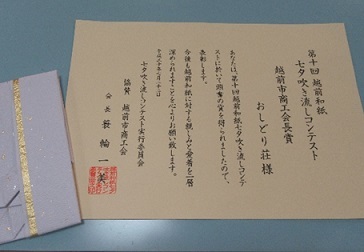 第十回 越前和紙
七夕吹き流しコンテスト
越前市商工会長賞
おしどり荘様
あなたは、第十回越前和紙七夕吹き流しコンテ
ストに於いて頭書の賞を得られましたので、
表彰します。
今後も越前和紙に対する親しみと愛着を一層
深められますことを心よりお願い致します。
七夕吹き流しコンテスト実行委員会
協賛 越前市商工会
会長